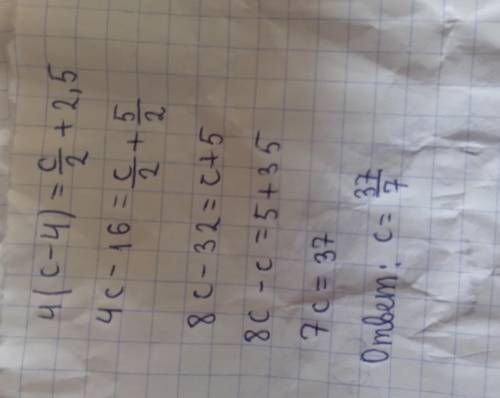 4(c-4) = c/2 + 2,5
4c - 16 = c/2 + 5/2
8c - 32 = c + 5
8c - c = 5 + 35
7c = 37
Ответ: c = 37/7